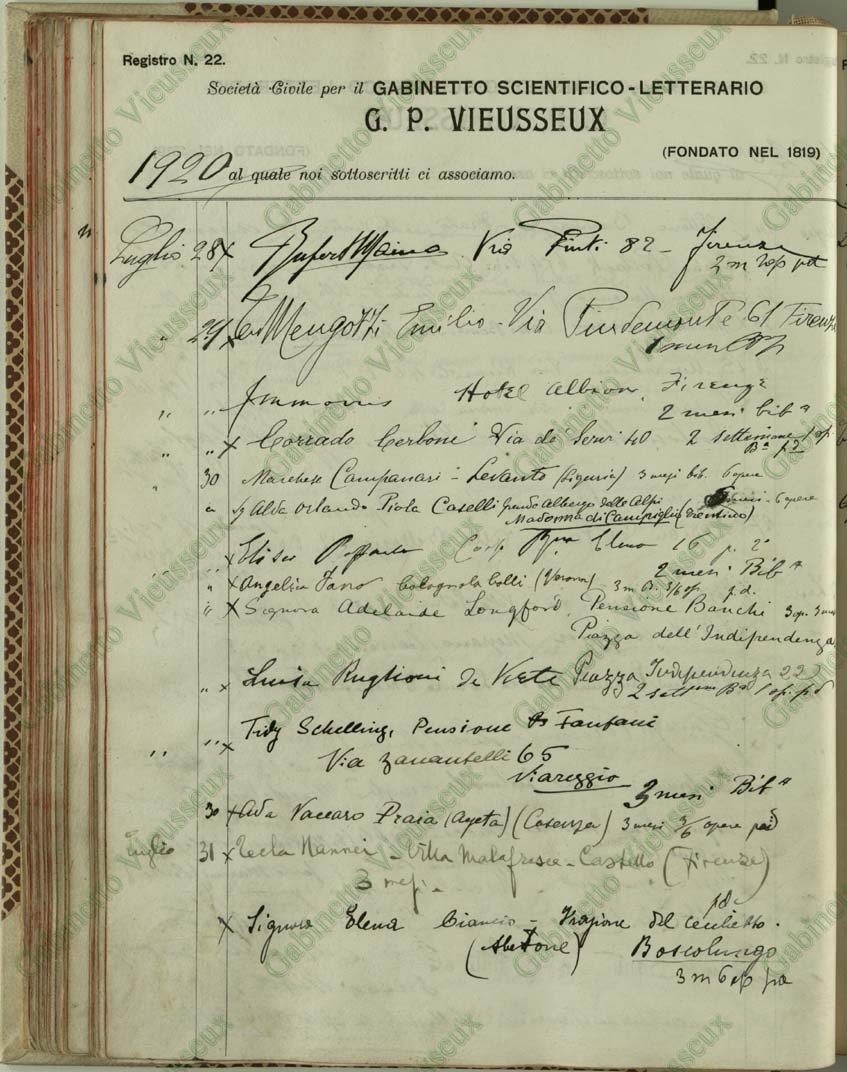 Registro N. 22.
Società Civile per il GABINETTO SCIENTIFICO-LETTERARIO
G. P. VIEUSSEUX
(FONDATO NEL 1819)
1920 al quale noi sottoscritti ci associamo.
Luglio 28 x Via Pinti 82 - Firenze
2 m
" 29 x Mengotti Emilio - Via Pindemonte 61 Firenze
1
" " Hotel Albion, Firenze
2 mesi bibª
" " x Corrado Cerboni Via de' Servi 40 2 settimane 1 op
" 30 Marchese Campanari - Levanto (Liguria) 3 mesi bib. 6 opere
" Alda Orlando Piola Caselli Grande Albergo delle Alpi 6 opere
Madonna di Campiglio (Trentino)
" " x Elisa 16 p. 2°
2 mesi Bibª
" x Angelica Bolognola Colli (Verona) 3 m B. 3/6 op. p.d.
" x Signora Adelaide Longford, Pensione Banchi 3 op. 3
Piazza dell'Indipendenza
" x Luisa Ruglioni de Piazza Indipendenza 22
2 1 op. pd
" " x Tidy Schelling, Pensione Fanfani
Via Zanardelli 65
Viareggio
3 mesi Bibª
30 x Ada Vaccaro Praia (Ajeta) (Cosenza) 3 mesi 3/6 opere
Luglio 31 x Tecla Nannei - Villa Malafrasca - Castello (Firenze)
3 mesi -
x Signora Elena Ciancio - Frazione del
pd
(Abetone) Boscolungo
3 m 6 op